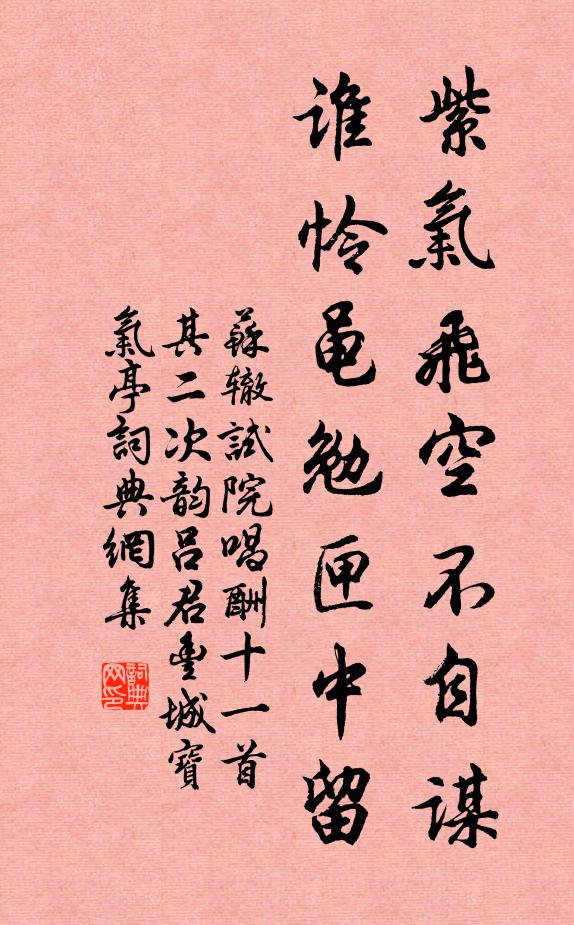 紫氣飛空不自謀
誰怜黽勉匣中留
蘇辙試院唱酬十一首
其二次韵呂君豐城寶
氣亭詞典網集
詞典网印